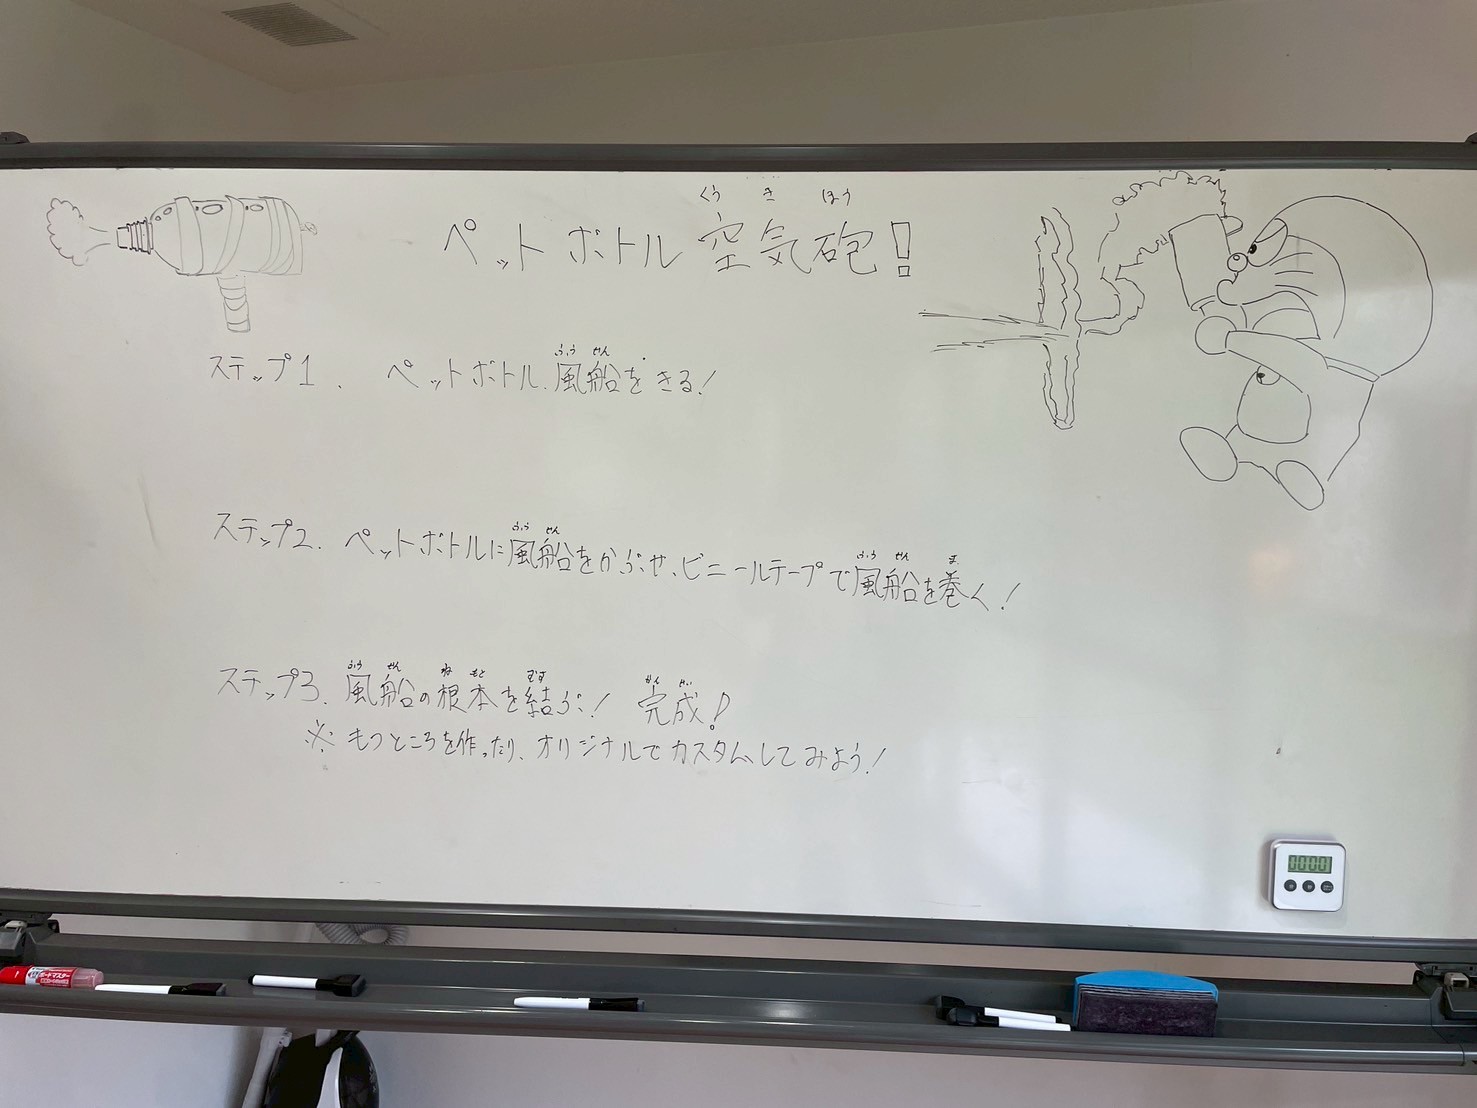 くう き ほう
ペットボトル空気砲!
ふう せん
ステップ1. ペットボトル、風船をきる!
ふう せん ふう せん ま
ステップ2. ペットボトルに風船をかぶせ、ビニールテープで風船を巻く!
ふう せん ね もと むす かん せい
ステップ3. 風船の根本を結ぶ! 完成!
※ もつところを作ったり、オリジナルでカスタムしてみよう!
00:00
ボードマスター